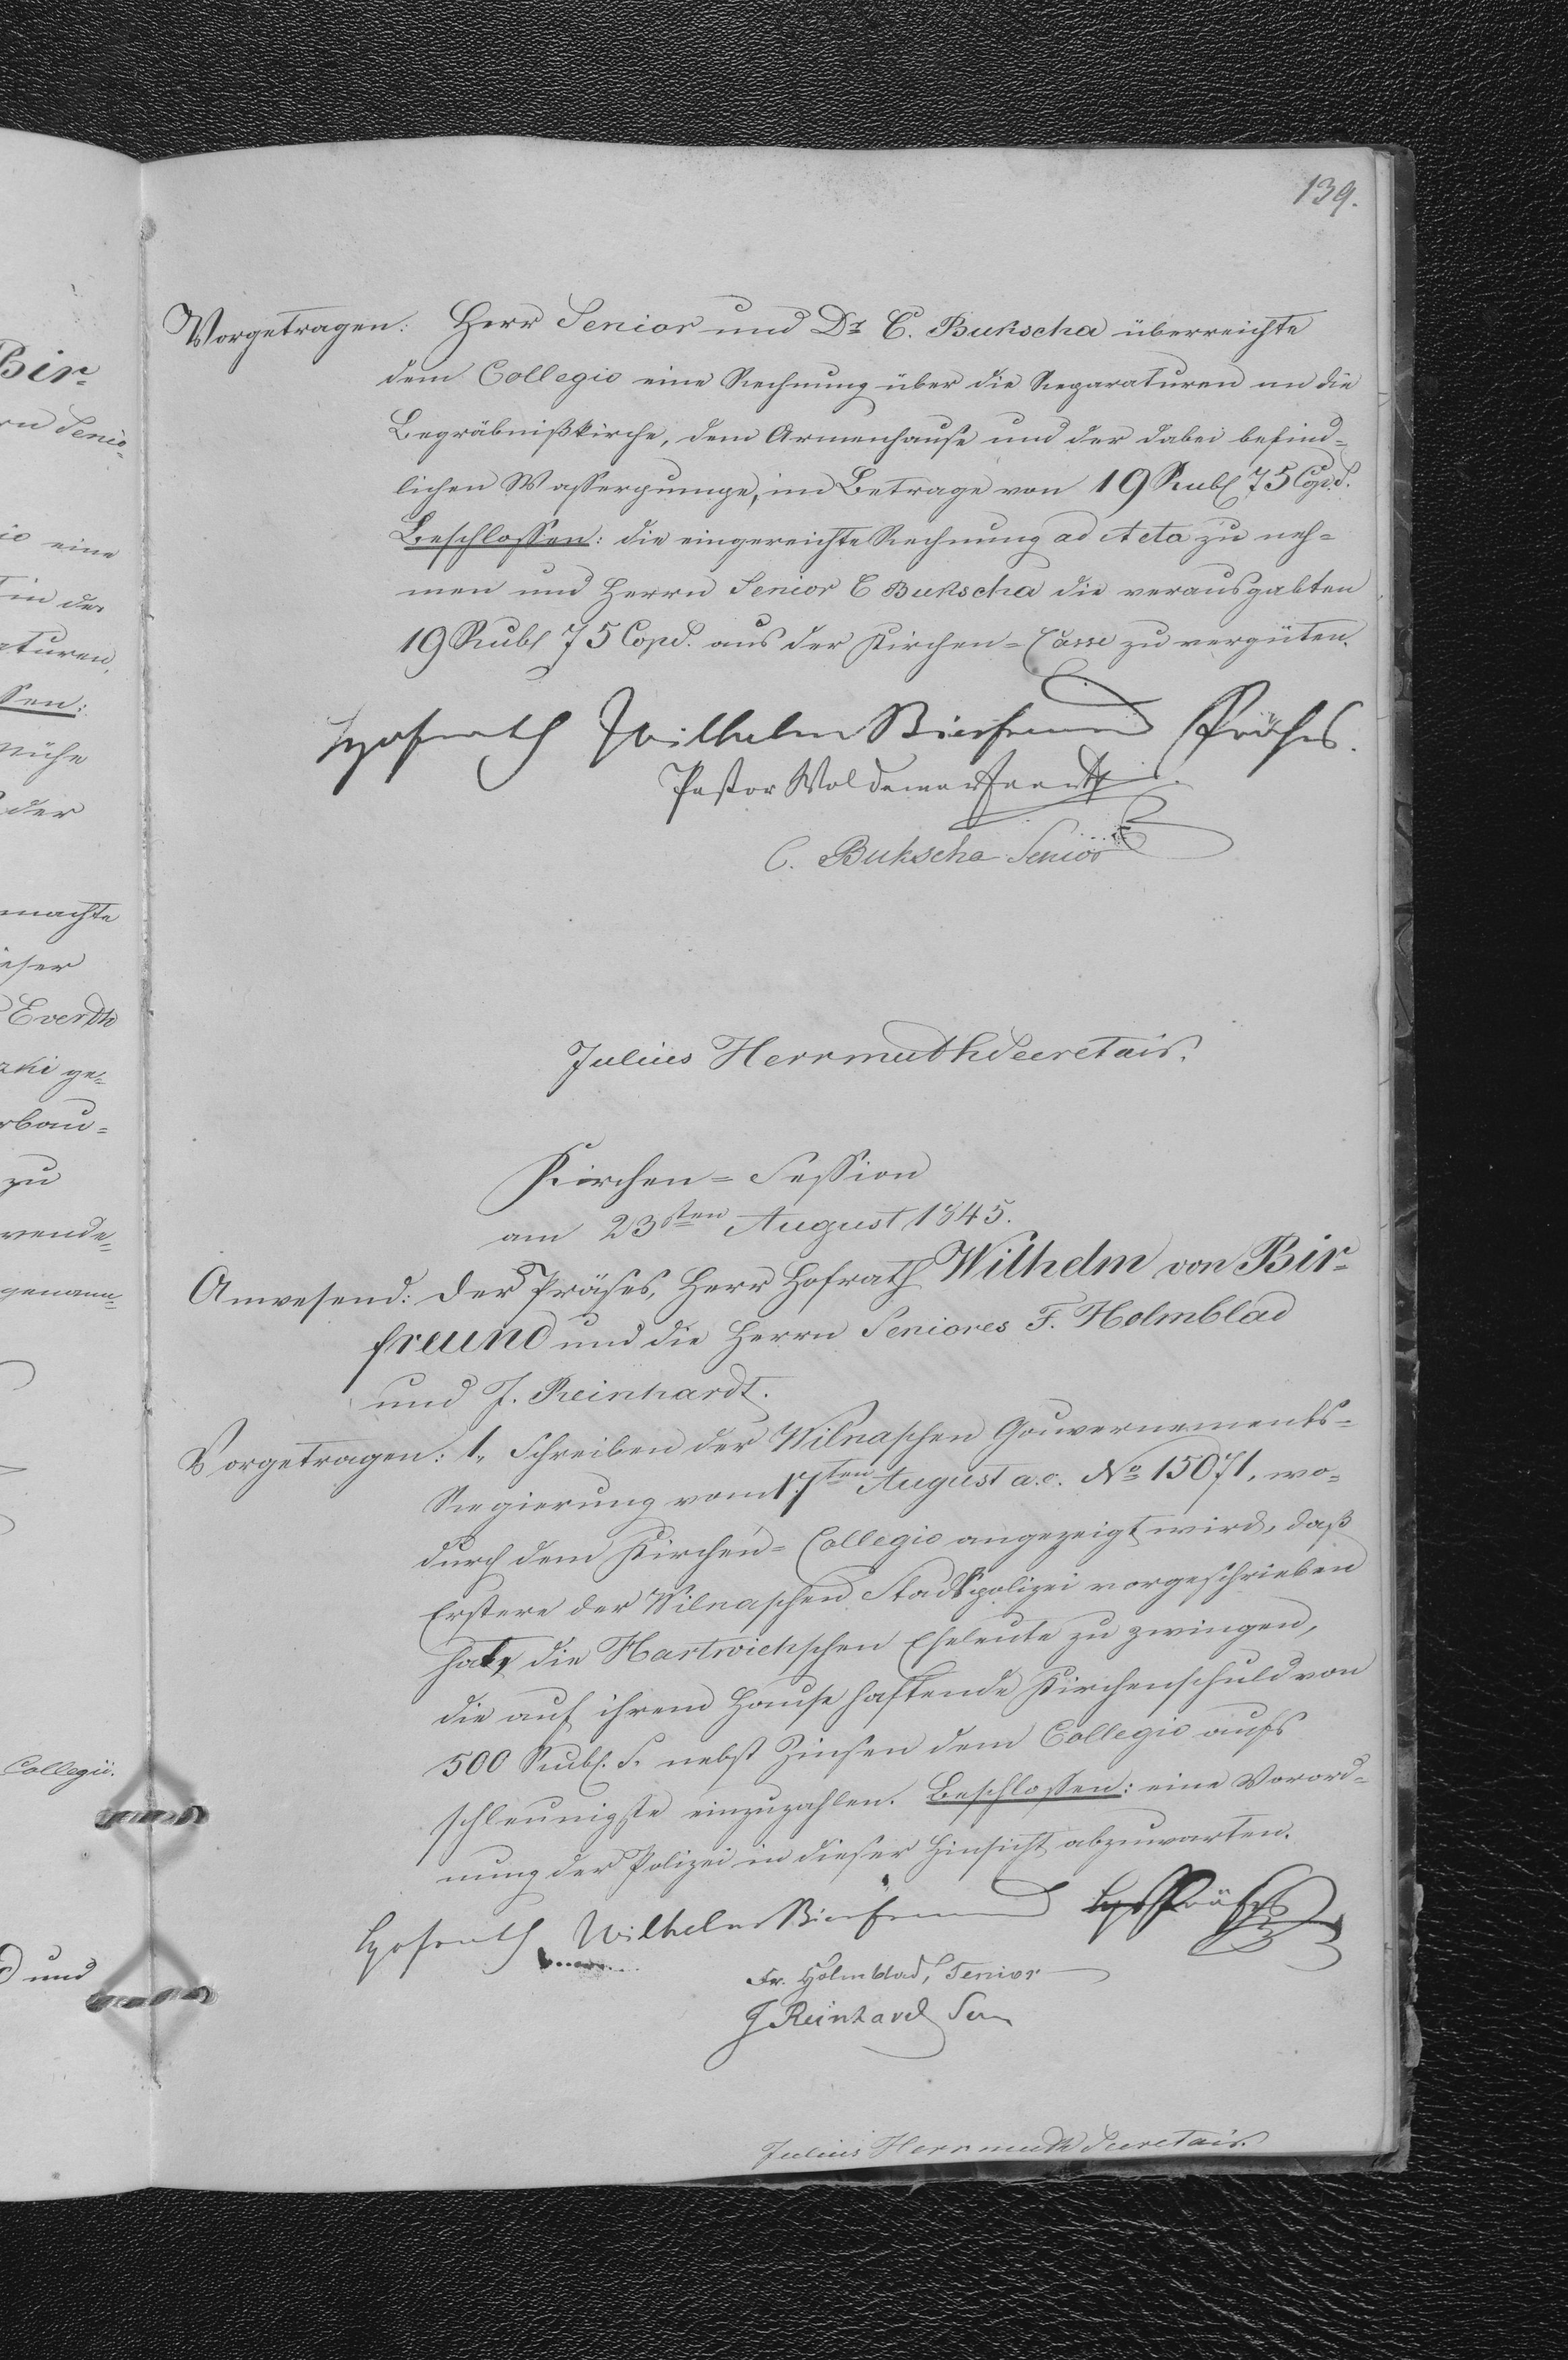 139.
Vorgetragen: Herr Senior und Dr C. Bukscha überreichte
dem Collegio eine Rechnung über die Reparaturen an die
Begräbnißkirche, dem Armenhause und der dabei befind=
lichen Wasserpumpe, im Betrage von 19 Rubl 75 Cop. S.
Beschlossen: die eingereichte Rechnung ad Acta zu neh=
men und Herrn Senior C Bukscha die verausgabten
19 Rubl 75 Cop S. aus der Kirchen=Casse zu vergüten.
Hofrath Wilhelm Birfreund Präses.
Pastor Woldemar
C. Bukscha Senior
Julius Herrmuth Secretair.
Kirchen=Session
am 23sten August 1845.
Anwesend: der Präses, Herr Hofrath Wilhelm von Bir=
freund und die Herrn Seniores F. Holmblad
und J. Reinhardt.
Vorgetragen: 1, Schreiben der Wilnaschen Gouvernements=
Regierung vom 17ten August a.c. No 15071, wo=
durch dem Kirchen=Collegio angezeigt wird, daß
Erstere der Wilnaschen Stadtpolizei vorgeschrieben
hat, die Hartwichschen Eheleute zu zwingen,
die auf ihrem Hause haftende Kirchenschuld von
500 Rubl. S. nebst Zinsen dem Collegio aufs
schleunigste einzuzahlen. Beschlossen: eine Verord=
nung der Polizei in dieser Hinsicht abzuwarten.
Hofrath Wilhelm Birfreund Präses
Fr. Holmblad, Senior
J Reinhard Sen
Julius Herrmuth Secretair.
Bir=
rn Senio=
io eine
in der
aturen,
ssen:
Mühe
der
machte
ieser
Everth
zki ge=
rbau=
zu
wende=
genann=
Collegii.
d und